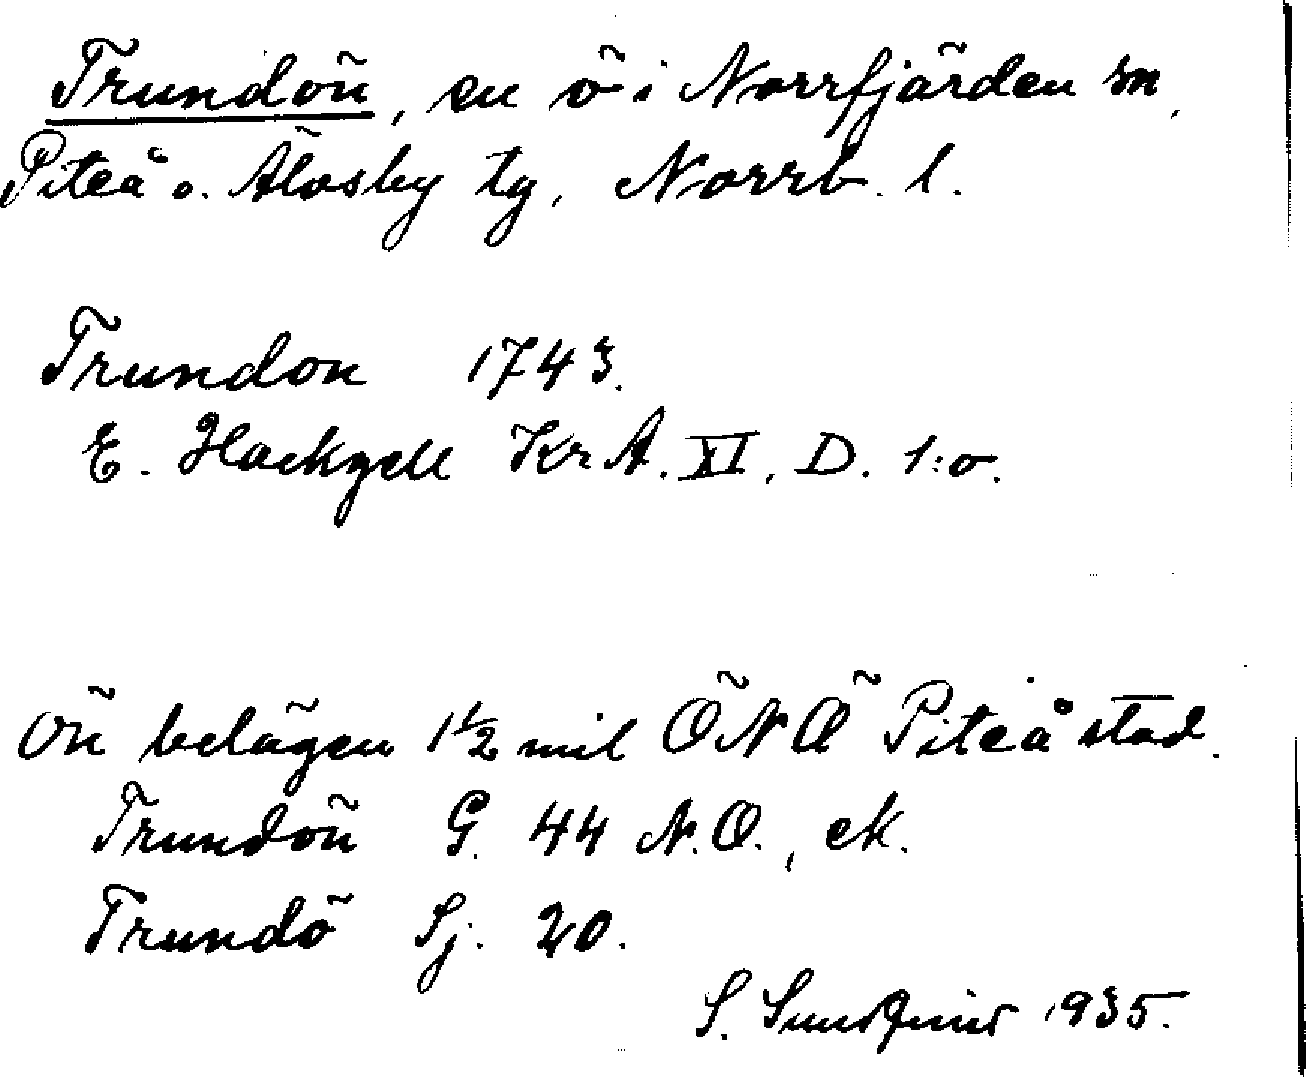 Trundön, en ö i Norrfjärden sn,
Piteå o. Älvsby tg, Norrb. l.
Trundon 1743.
E. Hackzell KrA. XI, D. 1:o.
Ön belägen 1½ mil ÖNÖ Piteå stad.
Trundön G. 44 N.O., ek.
Trundö Sj. 20.
S. 1935.